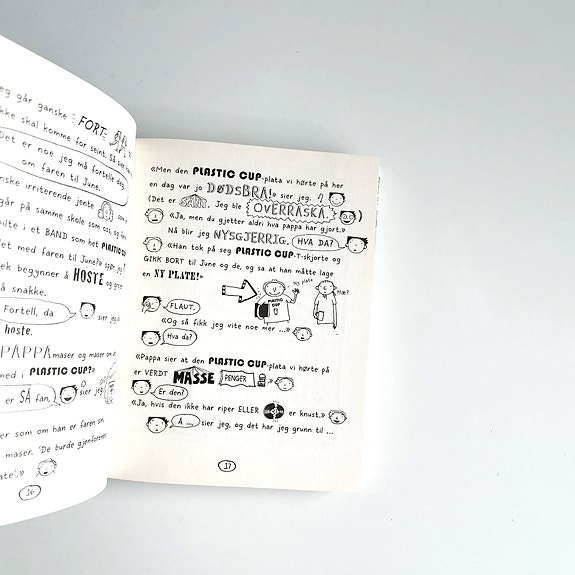 eg går ganske FORT
kke skal komme for seint. Så sier
Det er noe jeg må fortelle deg
om faren til June.
nske irriterende jente som
går på samme skole som oss, og
pilte i et BAND som het PLASTIC
det med faren til June?» spør jeg
ek begynner å HOSTE og
å snakke.
Fortell, da sier jeg
hoste.
PAPPA maser og maser om
med i PLASTIC CUP?»
er SÅ fan, sier jeg
er som om han er faren sin
maser. 'De burde gjenforenes
ate'.»
16
«Men den PLASTIC CUP-plata vi hørte på her
en dag var jo DØDSBRA!» sier jeg.
(Det er SANT. Jeg ble OVERRASKA.)
«Ja, men du gjetter aldri hva pappa har gjort.»
Nå blir jeg NYSGJERRIG. HVA DA?
«Han tok på seg PLASTIC CUP-T-skjorte og
GIKK BORT til June og de, og sa at han måtte lage
en NY PLATE!»
Ny plate
Hæ?
PLASTIC CUP
FLAUT.
«Og så fikk jeg vite noe mer ...»
Hva da?
«Pappa sier at den PLASTIC CUP-plata vi hørte på
er VERDT MASSE PENGER»
Er den?
«Ja, hvis den ikke har riper ELLER er knust.»
Å ... sier jeg, og det har jeg grunn til ...
17